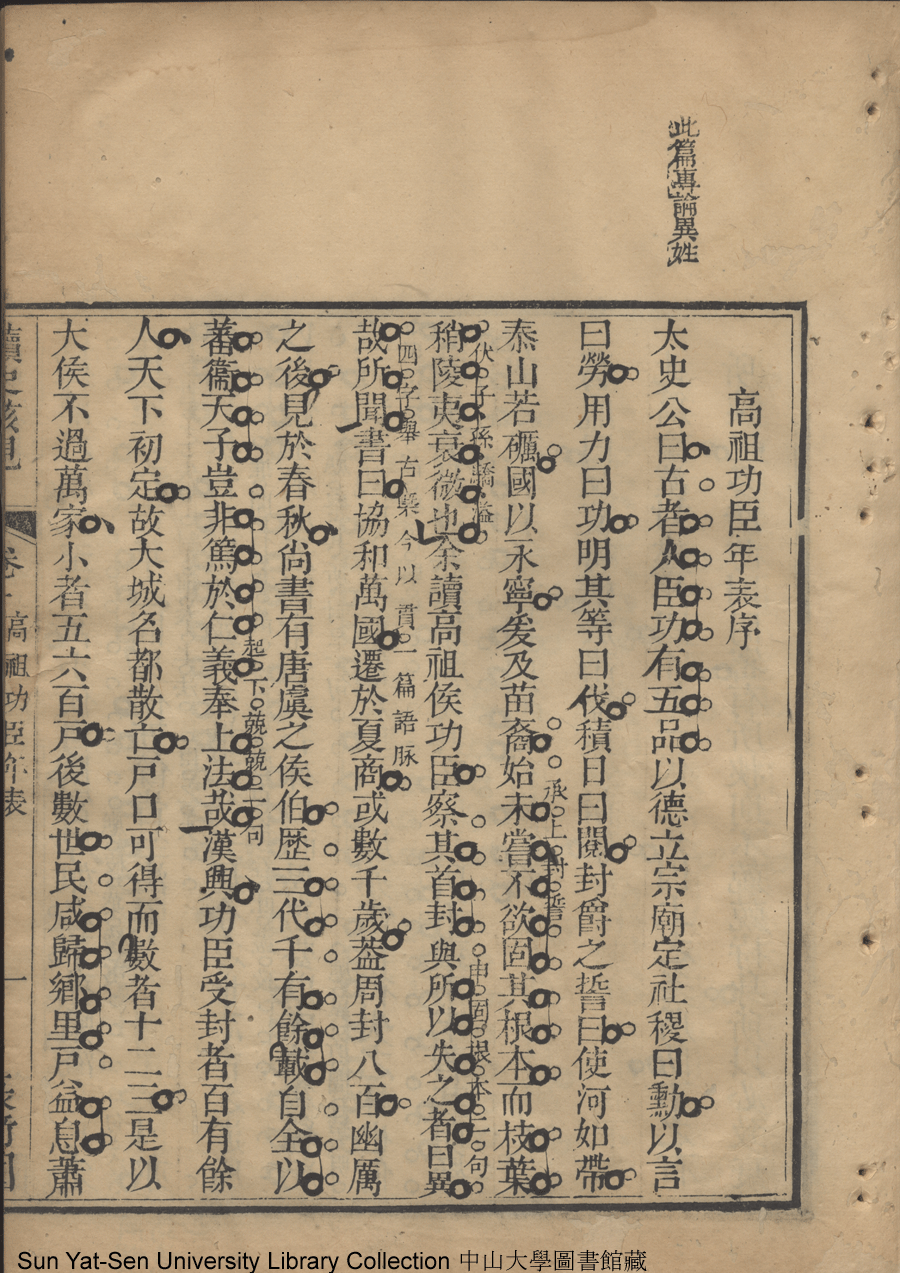 此篇專論異姓
高祖功臣年表序
太史公曰古者人臣功有五品以德立宗廟定社稷曰勳以言
曰勞用力曰功明其等曰伐積日曰閱封爵之誓曰使河如帶
泰山若礪國以永寧爰及苗裔始未嘗不欲固其根本而枝葉
承上封誓
稍陵夷衰微也余讀高祖侯功臣察其首封與所以失之者曰異
伏子孫驕溢
申固根本二句
哉所聞書曰協和萬國遷於夏商或數千歲葢周封八百幽厲
四字舉古槩今以貫一篇語脉
之後見於春秋尚書有唐虞之侯伯歷三代千有餘載自全以
蕃衞天子豈非篤於仁義奉上法哉漢興功臣受封者百有餘
起下兢兢二句
人天下初定故大城名都散亡戸口可得而數者十二三是以
大侯不過萬家小者五六百戸後數世民咸歸鄉里戸益息蕭
高祖功臣年表
一
Sun Yat-Sen University Library Collection 中山大學圖書館藏